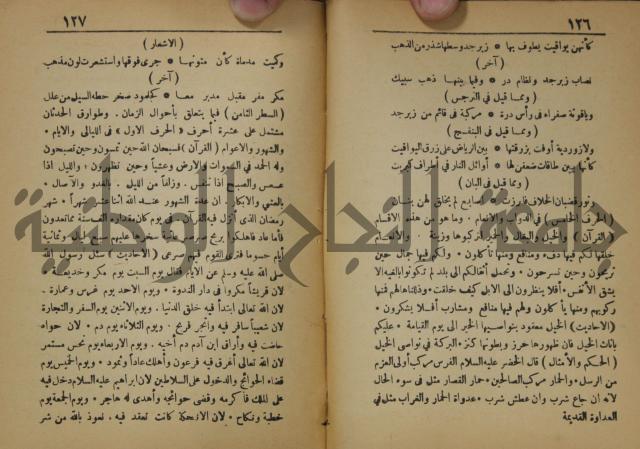 ١٢٦
كأنهن يواقيت يطوف بها * زبرجد وسطها شذر من الذهب
( آخر )
نصاب زبرجد ونظام در * وفيها بينها ذهب سبيك
( ومما قيل فى النرجس )
وياقوتة صفراء فى رأس درة * مركبة فى قائم من زبرجد
( ومما قيل فى البنفسج )
ولازوردية أوفت بزرقتها * بين الرياض على زرق اليواقيت
كأنها بين طاقات ضعفن لها * أوائل النار فى أطراف كبريت
( ومما قيل فى البان )
( الحرف الخامس ) فى الدواب والانعام . وما هو من هذه الاقسام
( القرآن ) والخيل والبغال والحمير لتركبوها وزينة . والانعام
خلقها لكم فيها دفء ومنافع ومنها تأكلون . ولكم فيها جمال حين
تريحون وحين تسرحون . وتحمل أثقالكم الى بلد لم تكونوا بالغيه الا
بشق الأنفس . أفلا ينظرون الى الابل كيف خلقت . وذللناها لهم فمنها
ركوبهم ومنها يأكلون ولهم فيها منافع ومشارب أفلا يشكرون .
( الاحاديث ) الخيل معقود بنواصيها الخير الى يوم القيامة . عليكم
باناث الخيل فان ظهورها حرز وبطونها كنز . البركة فى نواصى الخيل
( الحكم والأمثال ) قال الخضر عليه السلام الفرس مركب أولى العزم
من الرسل . والحمار مركب الصالحين . حمار القصار مثل فى سوء الحال
لانه ان جاع شرب وان عطش شرب . عداوة الحمار والغراب مثل فى
العداوة القديمة
١٢٧
( الاشعار )
وكميت مدماة كأن متونها * جرى فوقها واستشعرت لون مذهب
( آخر )
مكر مفر مقبل مدبر معا * كجلمود صخر حطه السيل من عل
( السطر الثامن ) فيما يتعلق بأحوال الزمان . وطوارق الحدثان
مشتمل على عشرة أحرف « الحرف الاول » فى الليالى والايام .
والشهور والاعوام ( القرآن ) فسبحان الله حين تمسون وحين تصبحون
وله الحمد فى السموات والارض وعشيا وحين تظهرون . والليل اذا
عسعس والصبح اذا تنفس . وزلفا من الليل . بالغدو والآصال .
بالعشى والابكار . ان عدة الشهور عند الله اثنا عشر شهرا . شهر
رمضان الذى أنزل فيه القرآن . فى يوم كان مقداره ألف سنة مما تعدون
فأما عاد فاهلكوا بريح صرصر عاتية سخرها عليهم سبع ليال وثمانية
أيام حسوما فترى القوم فيها صرعى ( الأحاديث ) سئل رسول الله
صلى الله عليه وسلم عن الايام فقال يوم السبت يوم مكر وخديعة .
لان قريشا مكروا فى دار الندوة . ويوم الاحد يوم غرس وعمارة .
لان الله تعالى ابتدأ فيه خلق الدنيا . ويوم الاثنين يوم السفر والتجارة
لان شعيبا سافر فيه واتجر فربح . ويوم الثلاثاء يوم دم . لان حواء
حاضت فيه وأراق ابن آدم دم أخيه . ويوم الاربعاء يوم نحس مستمر
لان الله تعالى أغرق فيه فرعون وأهلك عادا وثمود . ويوم الخميس يوم
قضاء الحوائج والدخول على السلاطين لان ابراهيم عليه السلام دخل فيه
على الملك فأكرمه وقضى حوائجه وأهدى له هاجر . ويوم الجمعة يوم
خطبة ونكاح . لان الانكحة كانت تعقد فيه . نعوذ بالله من شر
جامعة النجاح الوطنية